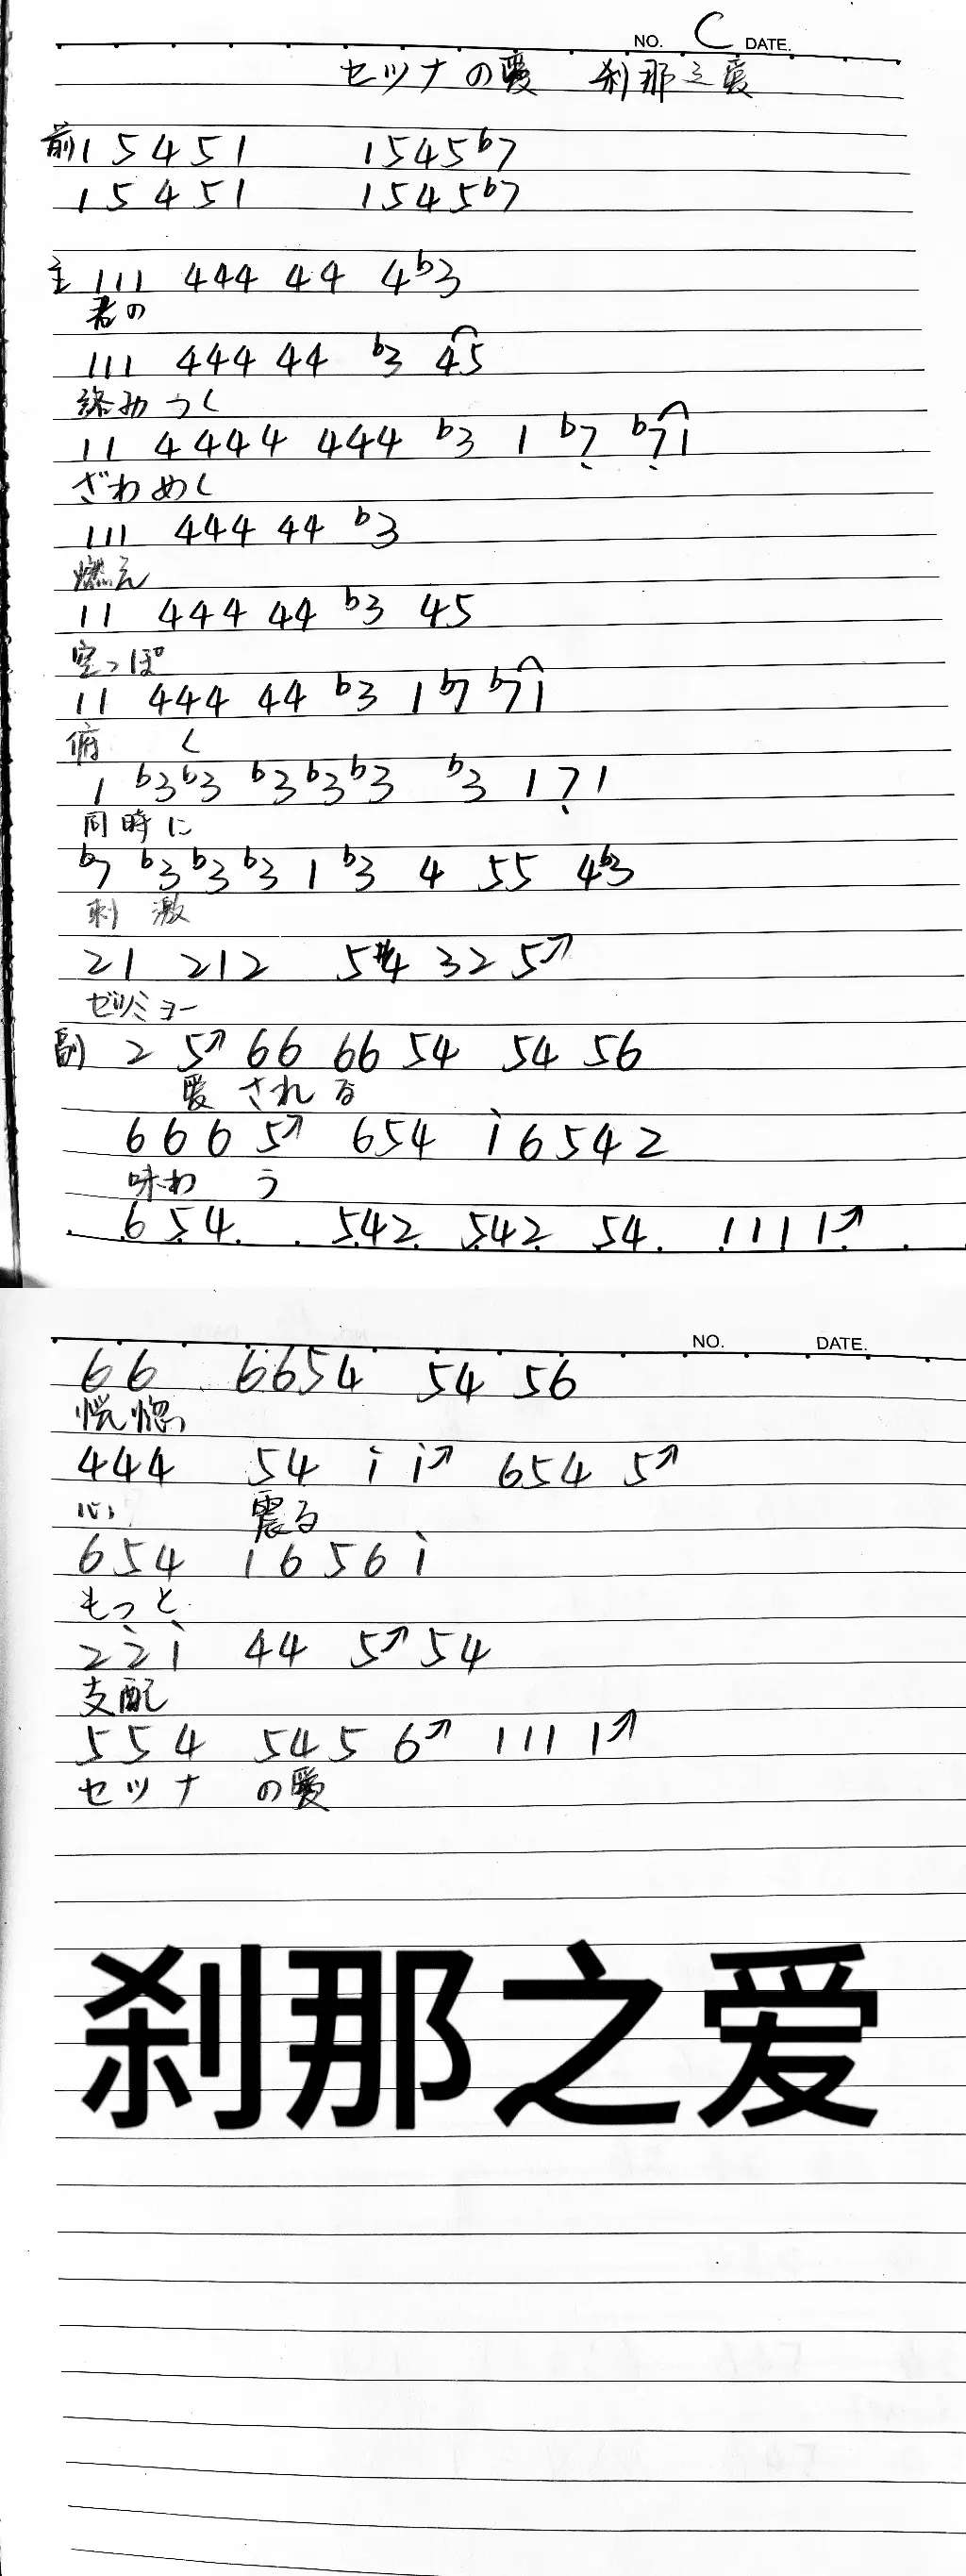 NO. C DATE.
セツナの愛 刹那之爱
前 1 5 4 5 1 1 5 4 5 b7
1 5 4 5 1 1 5 4 5 b7
主 111 444 44 4 b3
君の
111 444 44 b3 45
絡みつく
11 4444 444 b3 1 b7̣ b7̣1
ざわめく
111 444 44 b3
燃え
11 444 44 b3 45
空っぽ
11 444 44 b3 1 b7 b71
俯 く
1 b3b3 b3b3b3 b3 1 7̣ 1
同時に
b7 b3b3b3 1 b3 4 55 4b3
刺激
21 212 5#4 32 5↗
ゼツミョー
副 2 5↗ 66 66 54 54 56
愛される
6 6 6 5↗ 654 i 6 5 4 2
味わ う
6 5 4 542 542 54 1 1 1 1↗
NO. DATE.
6 6 6654 54 56
恍惚
444 54 i i↗ 654 5↗
心 震る
654 1 6 5 6 i
もっと
2 2̇ i 44 5↗ 54
支配
5 5 4 5 4 5 6↗ 1 1 1 1↗
セツナ の愛
刹那之爱